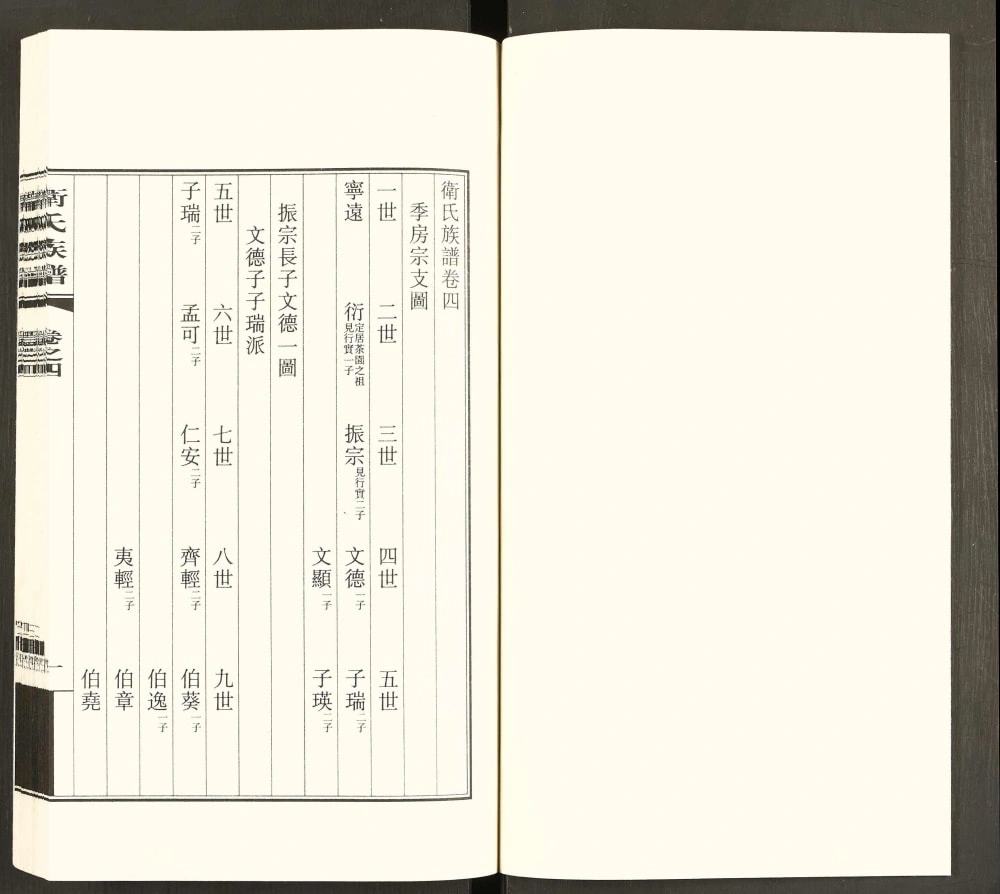 衛氏族譜卷四
季房宗支圖
一世 二世 三世 四世 五世
寧遠 衍定居茶園之祖見行實一子 振宗見行實二子 文德一子 子瑞二子
文顯一子 子瑛二子
振宗長子文德一圖
文德子子瑞派
五世 六世 七世 八世 九世
子瑞二子 孟可二子 仁安二子 齊輕二子 伯葵一子
伯逸一子
夷輕二子 伯章
伯堯
衛氏族譜 卷之四 一